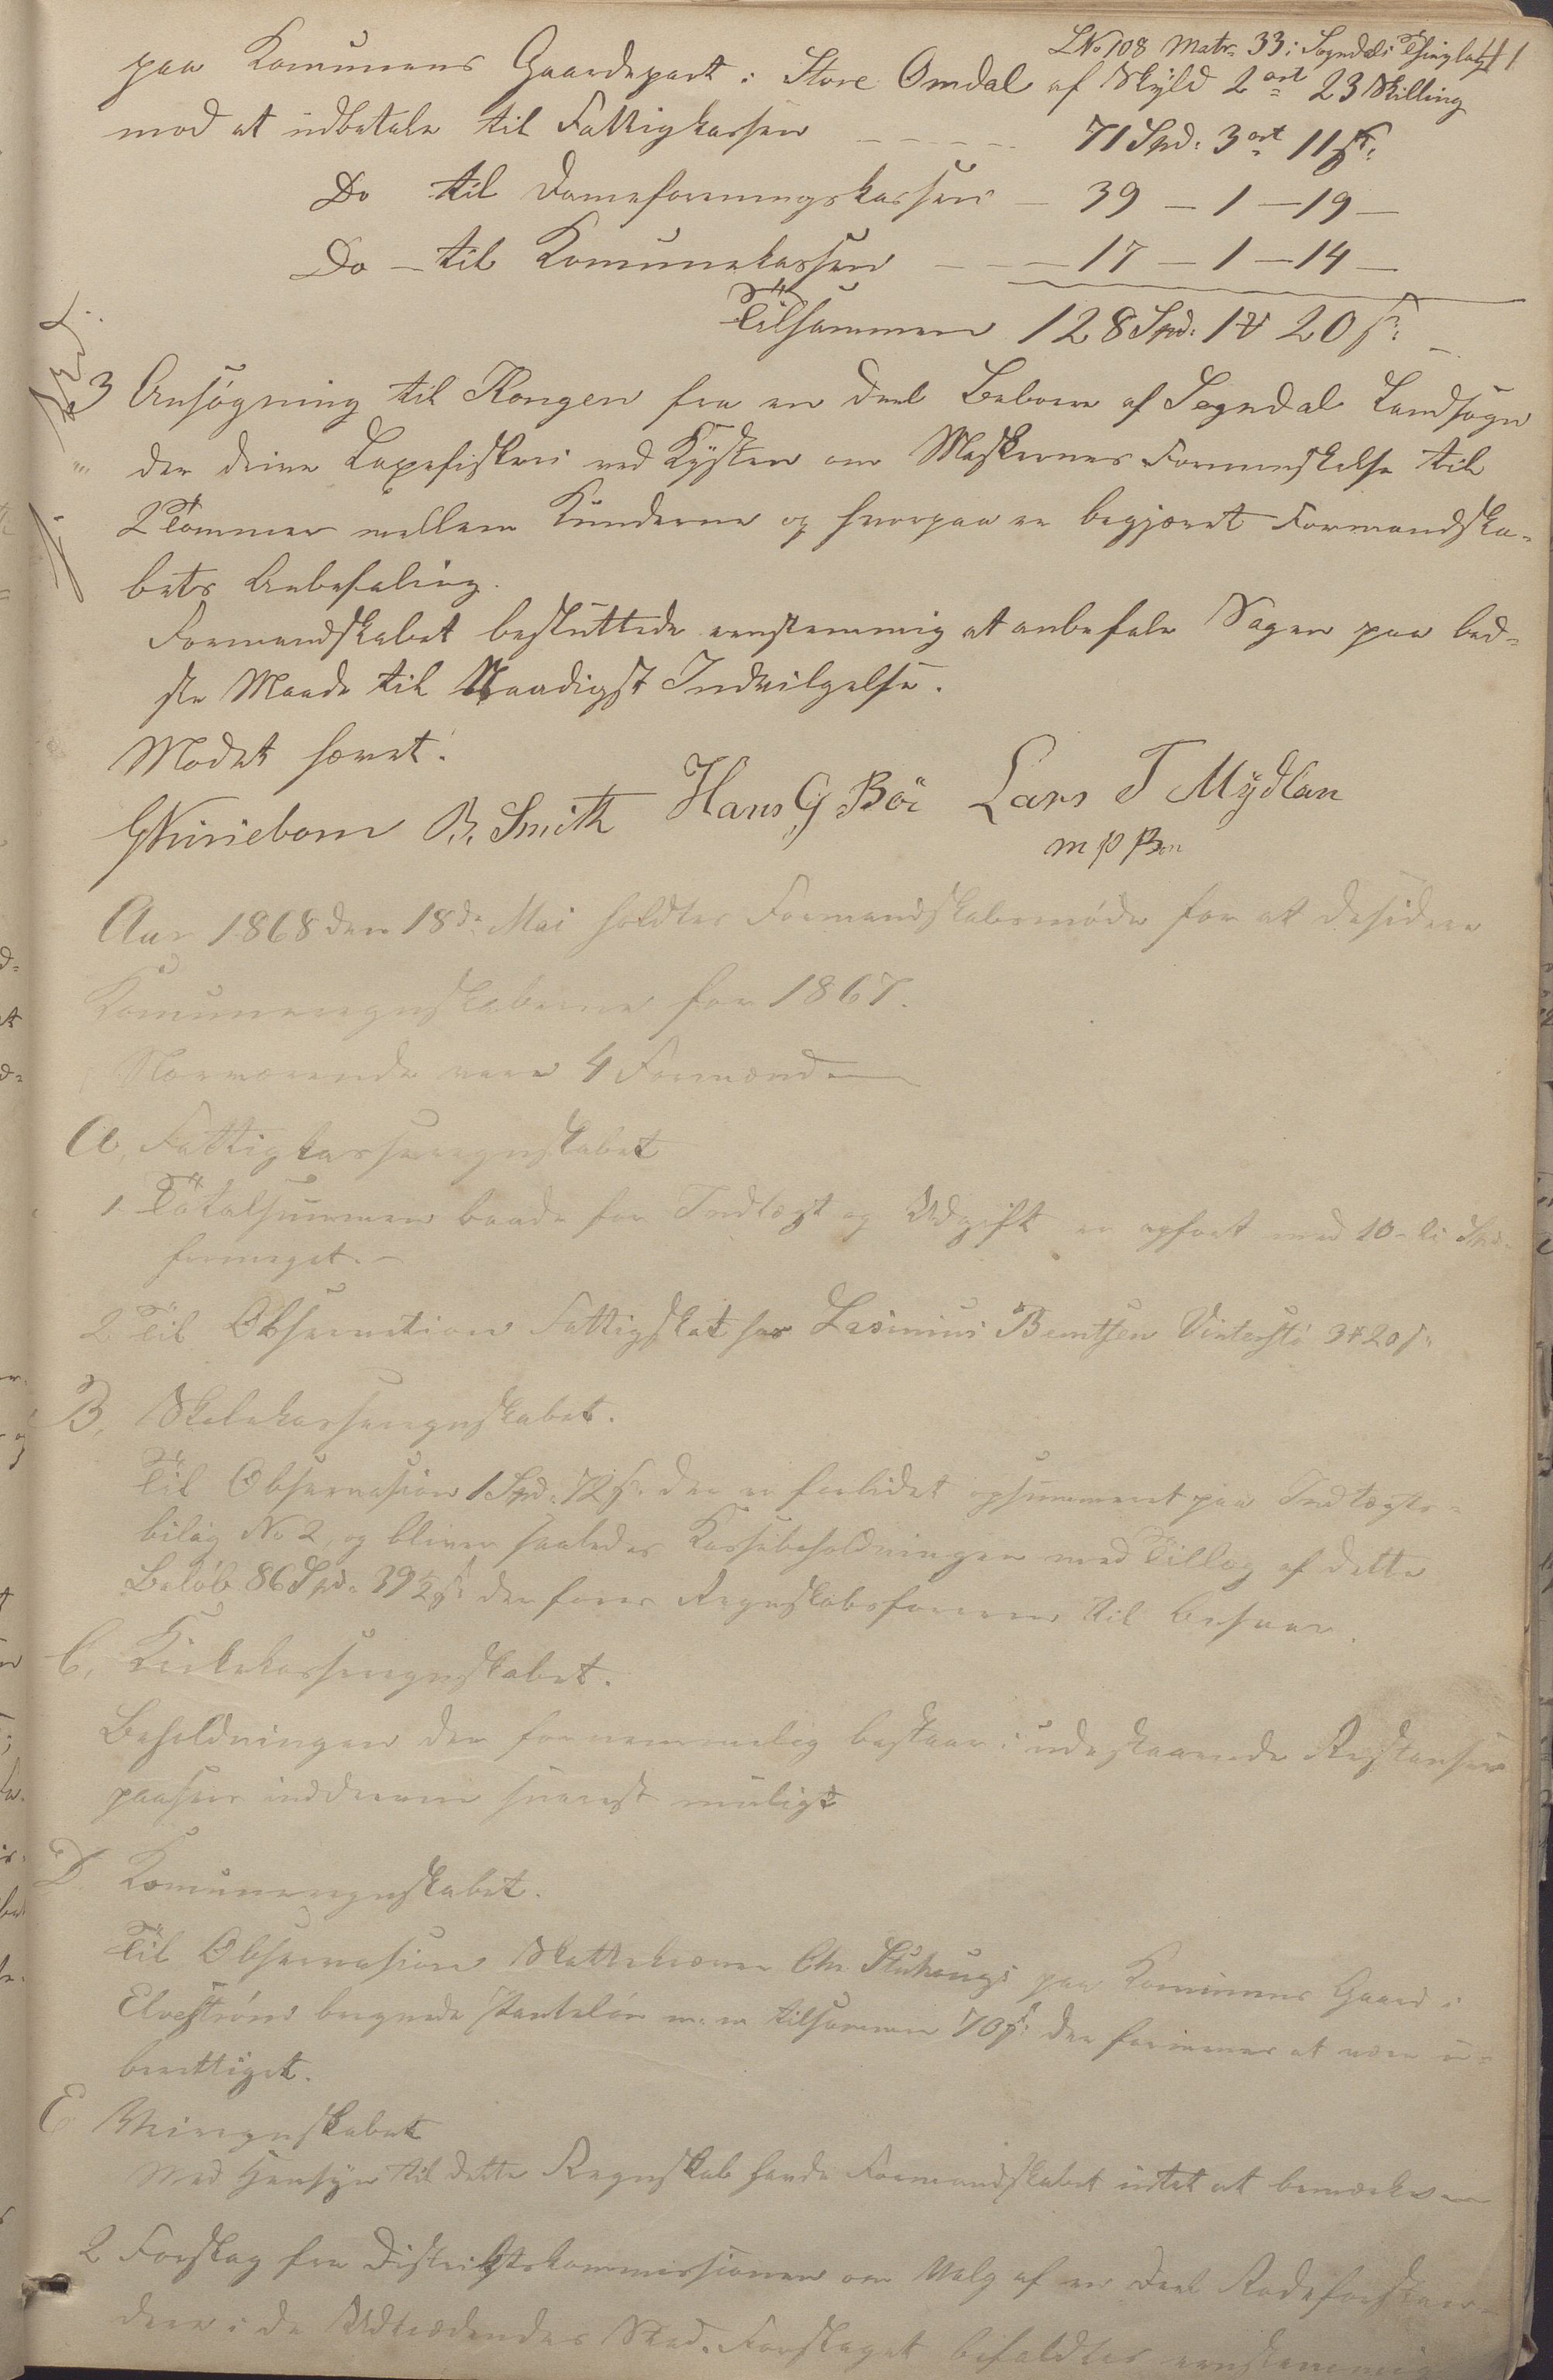 LNo 108 Matr. 33 i Sogndals Thinglag 41
paa Komunens Gaardepart i Store Omdal af Skyld 2 ort 23 Skilling
mod at indbetale til Fattigkassen 71 Spd: 3 ort 11 s:
Do til Domeforeningskassen — 39 — 1 — 19 —
Do — til Komunekassen — 17 — 1 — 14 —
Tilsammen 128 Spd: 1 20 s:
3 Ansøgning til Kongen fra en Deel Beboere af Sogndal Landsogn
der drive Laxefiskeri ved Kysten om Maskernes Formindskelse til
2 Tommer mellem Knuderne og hvorpaa er begjæret Formandska-
bets Anbefaling.
Formandskabet besluttede eenstemmig at anbefale Sagen paa bed-
ste Maade til Naadigst Indvilgelse.
Mødet hævet.
B. Smith Hans G Böe Lars T Mydlan
m p P
Aar 1868 den 18de Mai holdtes Formandskabsmøde for at desidere
Komuneregnskaberne for 1867.
Nærværende vare 4 Formænd —
A, Fattigkasseregnskabet
1. Totalsummen baade for Indtægt og Udgift er opført med 10 - ti Spd.
formeget. —
2 Til Observation Fattigskat hos Lasinius Berntsen Vinterstø 3 20 s:
B, Skolekasseregnskabet.
Til Observasion 1 Spd: 72 s: der er forlidet opsummeret paa Indtægts-
bilag No 2, og bliver saaledes Kassebeholdningen med Tillæg af dette
Beløb 86 Spd. 39½ s: der føres Regnskabsføreren til Ansvar.
C, Kirkekasseregnskabet.
Beholdningen der fornemmelig bestaar i udestaaende Restanser
paasees inddreven snarest muligt
D Komuneregnskabet.
Til Observasion Skattekræver Chr. Stuhaugs paa Komunens Gaard i
Elvestrøns beregnede Panteløn m. m tilsammen 70 s: der formenes at være u-
berettiget.
E Veiregnskabet
Med Hensyn til dette Regnskab havde Formandskabet intet at bemærke —
2 Forslag fra Distriktskommissionen om Valg af en Deel Rodeforstan-
dere i de Udtrædendes Sted. Forslaget bifaldtes eenstemmig